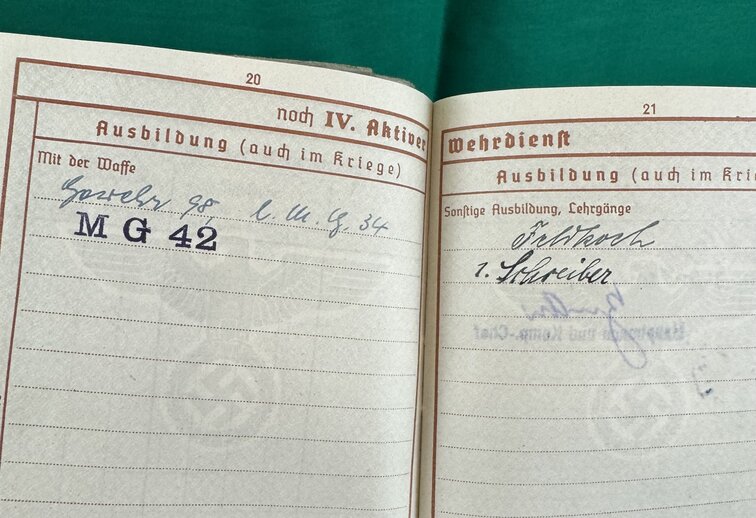 20
noch IV. Aktiver
Ausbildung (auch im Kriege)
Mit der Waffe
Gewehr 98, l. M. G. 34
M G 42
21
Wehrdienst
Ausbildung (auch im Krie
Sonstige Ausbildung, Lehrgänge
Feldkoch
1. Schreiber
Hauptmann und Komp.-Chef